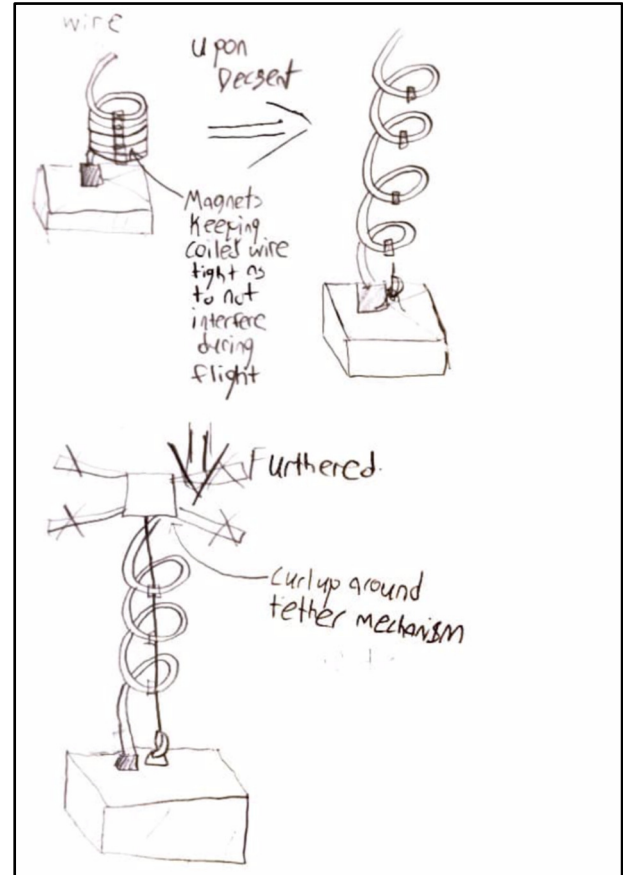 wire
upon
Decsent
Magnets
Keeping
coiled wire
tight as
to not
interfere
during
flight
Furthered.
curl up around
tether mechanism